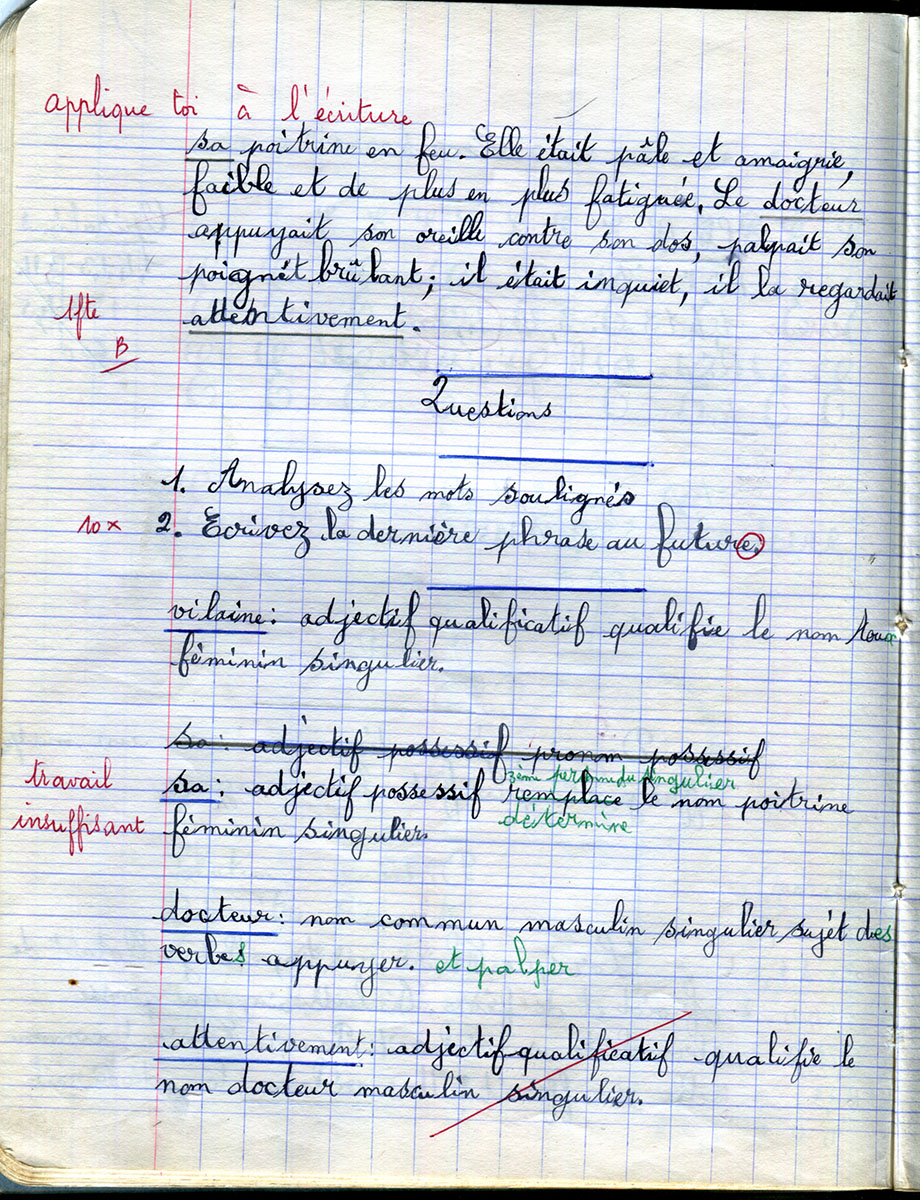 applique toi à l'écriture
sa poitrine en feu. Elle était pâle et amaigrie,
faible et de plus en plus fatiguée. Le docteur
appuyait son oreille contre son dos, palpait son
poignét brûlant; il était inquiet, il la regardait
1fte attentivement.
B
Questions
1. Analysez les mots soulignés
10 x 2. Ecrivez la dernière phrase au future.
vilaine: adjectif qualificatif qualifie le nom toux
féminin singulier.
sa: adjectif possessif pronom possessif
3ème personne du singulier
travail sa: adjectif possessif remplace le nom poitrine
détermine
insuffisant féminin singulier.
docteur: nom commun masculin singulier sujét des
verbes appuyer. et palper
attentivement: adjectif qualificatif qualifie le
nom docteur masculin singulier.